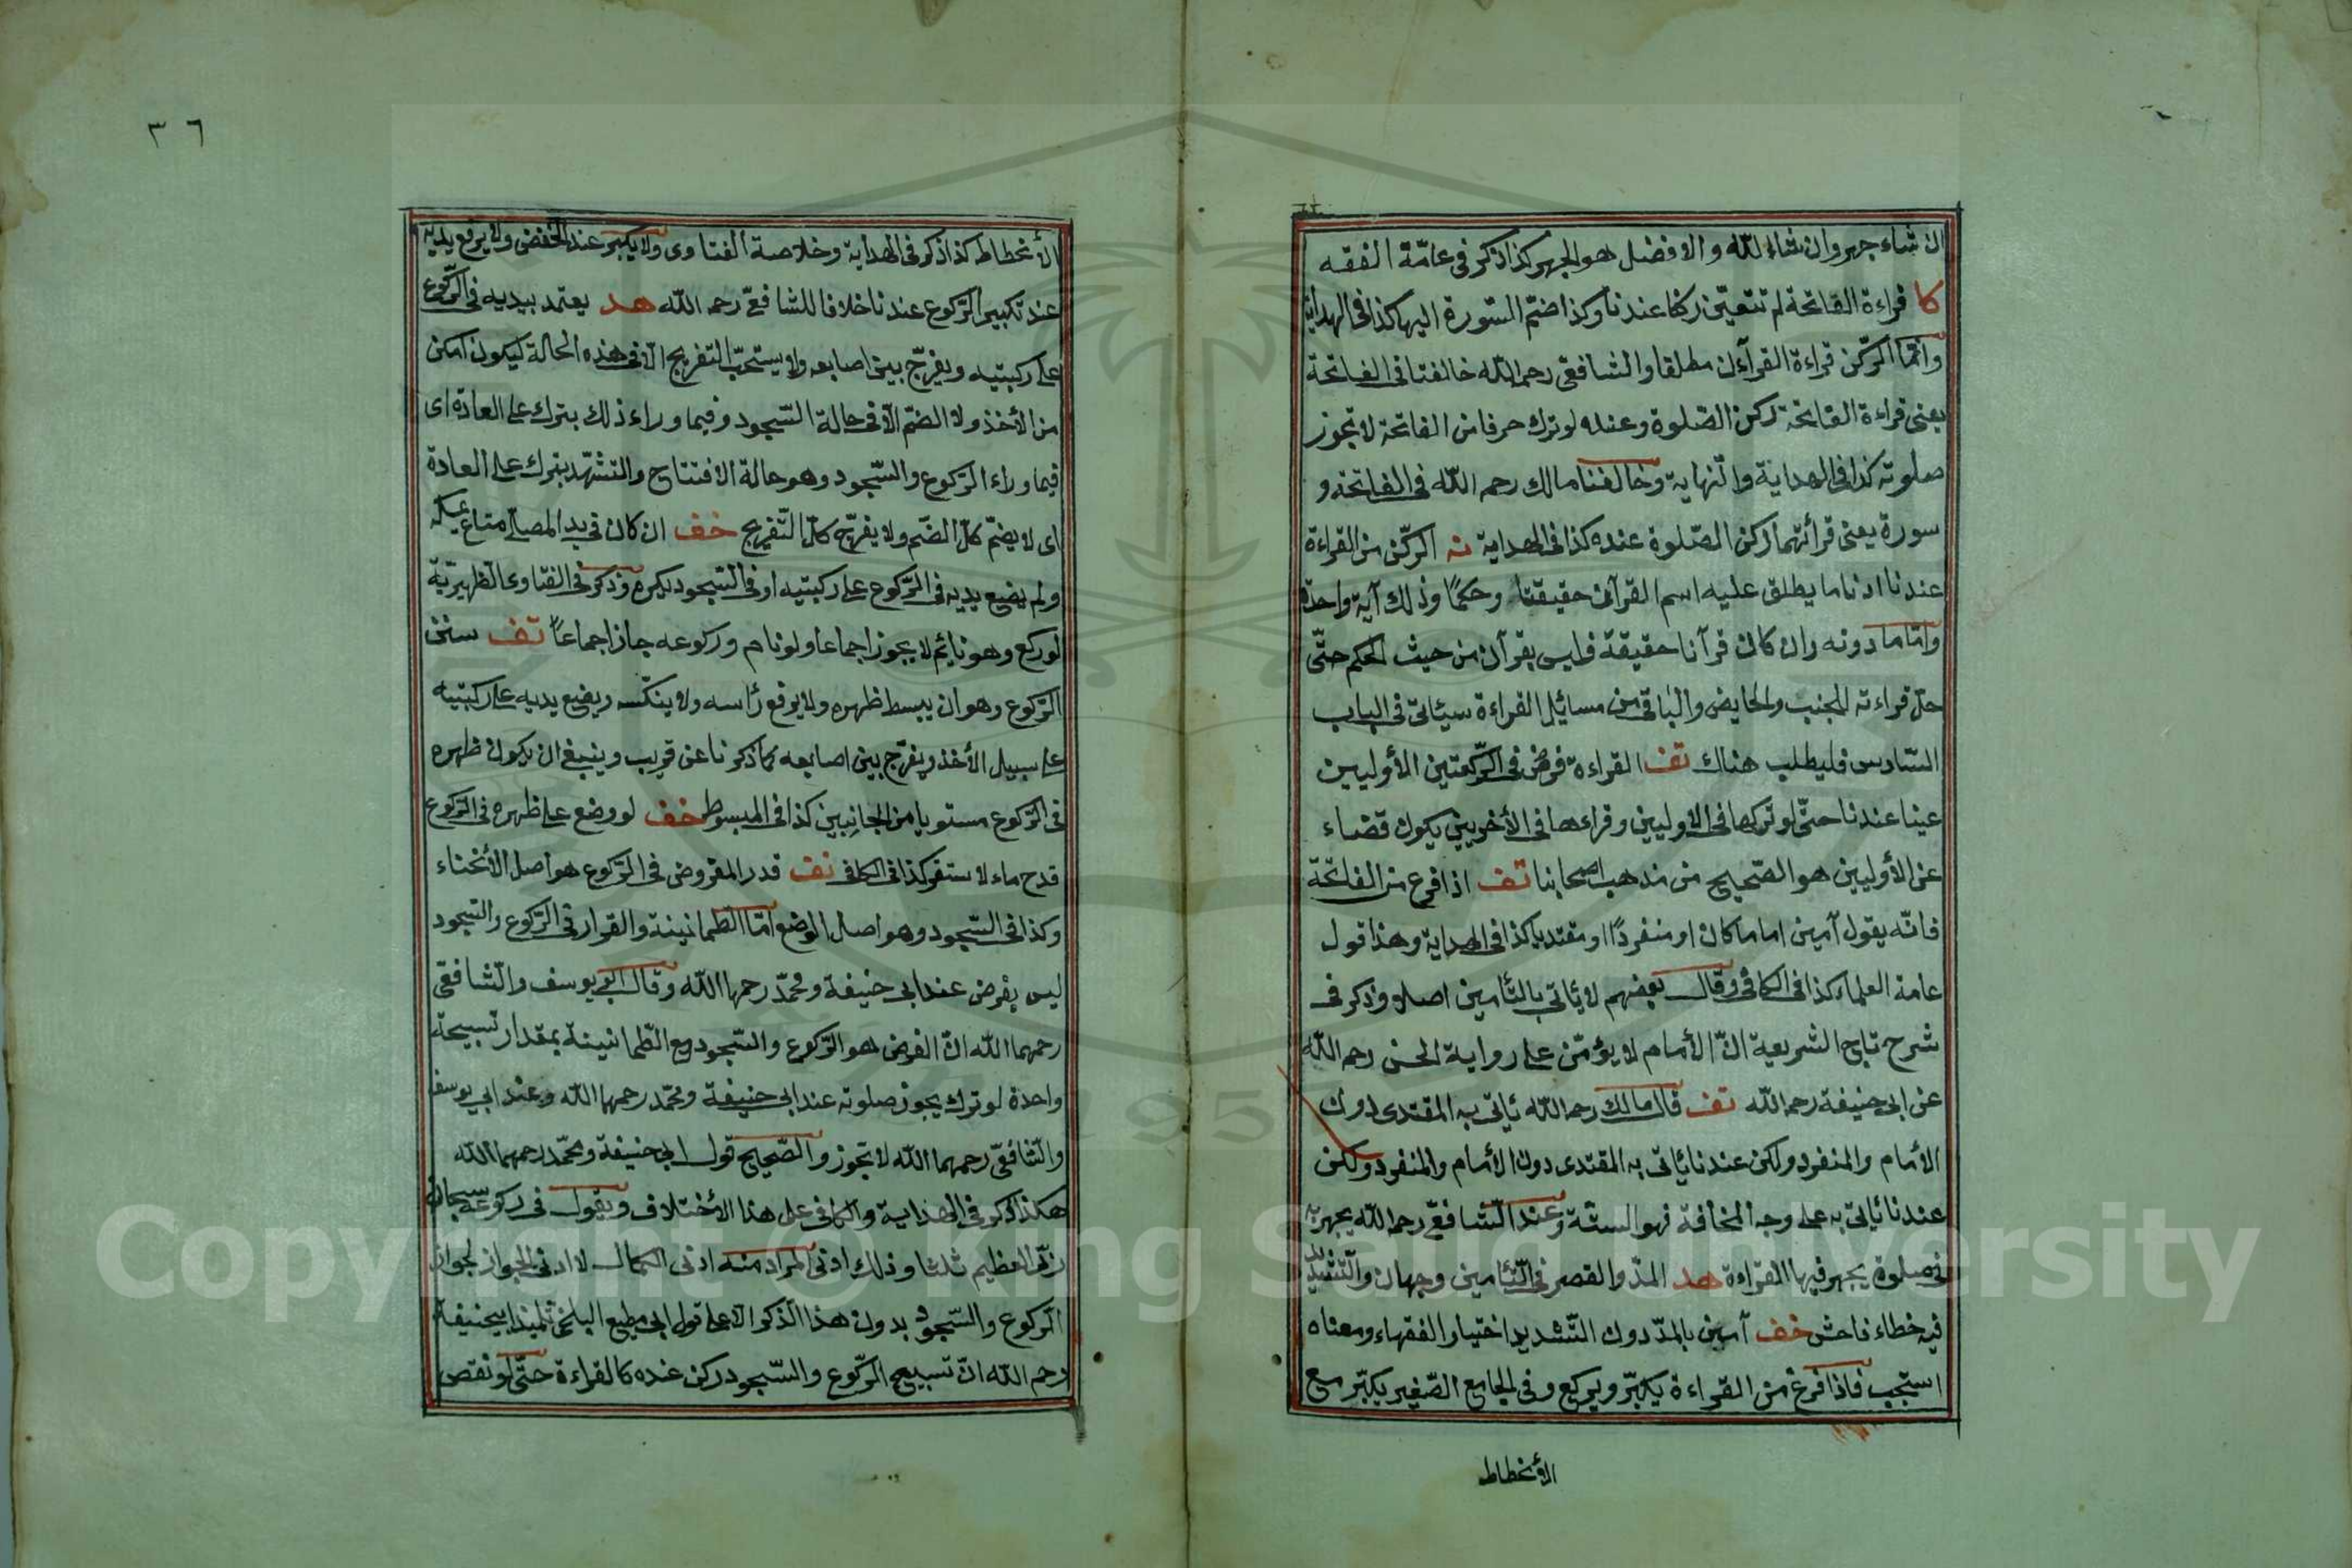 ان شاء جهر وان شاء لله والافضل هو الجهر كذا ذكر فى عامّة الفقه
كا قراءة الفاتحة لم تتعيّن ركنا عندنا وكذا ضمّ السّورة اليها كذا فى الهداية
وانّما الرّكن قراءة القرآن مطلقا والشافعى رحمه اللّه خالفنا فى الفاتحة
يعنى قراءة الفاتحة ركن الصّلوة وعنده لو ترك حرفا من الفاتحة لا تجوز
صلوته كذا فى الهداية والنّهاية وخالفنا مالك رحمه اللّه فى الفاتحة و
سورة يعنى قرأتهما ركن الصّلوة عنده كذا فى الهداية نه الركّن من القراءة
عندنا ادنا ما يطلق عليه اسم القرآن حقيقتا وحكمًا وذلك آية واحدة
وامّا ما دونه وان كان قرآنا حقيقة فليس بقرآن من حيث الحكم حتّى
حلّ قراءته للجنب والحايض والباقى من مسائيل القراءة سيئاتى فى الباب
السّادس فليطلب هناك تف القراءة فرض فى الرّكعتين الأوليين
عينا عندنا حتّى لو تركها فى الاوليين وقراءها فى الأخريين يكون قضاء
عن الأوليين هو الصّحيح من مذهب اصحابنا تف اذا فرع من الفاتحة
فانّه يقول آمين اماما كان او منفردًا او مقتديا كذا فى الهداية وهذا قول
عامة العلماء كذا فى الكافى وقال بعضهم لا يئاتى بالتّأمين اصلا وذكر فى
شرح تاج الشريعية انّ الأمام لا يؤمّن على رواية الحسن رحمه اللّه
عن ابى حنيفة رحمه اللّه تف قال مالك رحمه اللّه يئاتى به المقتدى دون
الأمام والمنفرد ولكن عندنا يئاتى به المقتدى دون الأمام والمنفرد ولكن
عندنا يئاتى به على وجه المخافة فهو السنّة وعند الشّافعىّ رحمه اللّه يجهر به
فى صلوة يجهر فيها القراءة هد المدّ والقصر فى التّأمين وجهان والتّشديد
فيه خطاء فاحش خف آمين بالمدّ دون التّشديد اختيار الفقهاء ومعناه
استجب فاذا فرغ من القراءة يكبّر ويركع وفى الجامع الصّغير يكبّر مع
الأنحطاط
٣٦
الأنحطاط كذا ذكر فى الهداية وخلاصة الفتاوى ولا يكبر عند الخفض ولا يرفع يديه
عند تكبير الرّكوع عندنا خلافا للشافعىّ رحمه اللّه هد يعتمد بيديه فى الرّكوع
على ركبتيه ويفرّج بين اصابعه ولا يستحبّ التفريج الّا فى هذه الحالة ليكون امكن
من الأخذ ولا الضمّ الّا فى حالة السّجود وفيما وراء ذلك يترك على العادة اى
فيما وراء الرّكوع والسّجود وهو حالة الافتتاح والتشهّد يترك على العادة
اى لا يضمّ كلّ الضّم ولا يفرّج كلّ التّفريج خف ان كان فى يد المصلّى متاع يمسكه
ولم يضع يديه فى الرّكوع على ركبتيه او فى السّجود يكره وذكر فى الفتاوى الظهيريّة
لو ركع وهو نائم لا يجوز اجماعا ولو نام فى ركوعه جاز اجماعاً تف سنن
الرّكوع وهو ان يبسط ظهره ولا يرفع رأسه ولا ينكّسه ويضع يديه على ركبتيه
على سبيل الأخذ ويفرّج بين اصابعه كما ذكرنا عن قريب وينبغى ان يكون ظهره
فى الرّكوع مستويا من الجانبين كذا فى المبسوط خف لو وضع على ظهره فى الرّكوع
قدح ماء لاستقر كذا فى الكافى تف قدر المفروض فى الرّكوع هو اصل الأنحناء
وكذا فى السّجود وهو اصل الوضع امّا الطّمانينة والقرار فى الرّكوع والسّجود
ليس بفرض عند ابى حنيفة ومحمّد رحمهما اللّه وقال ابى يوسف والشّافعى
رحمهما اللّه انّ الفرض هو الرّكوع والسّجود مع الطّمانينة بمقدار تسبيحة
واحدة لو ترك يجوز صلوته عند ابى حنيفة ومحمّد رحمهما اللّه وعند ابى يوسف
والشّافعىّ رحمهما اللّه لا تجوز والصّحيح قول ابى حنيفة ومحمّد رحمهما اللّه
هكذا ذكر فى الهداية والكافى على هذا الأختلاف ويقول فى ركوعه سبحان
ربّى العظيم ثلثا وذلك ادنى المراد منه ادنى الكمال لا ادنى الجواز لجواز
الرّكوع والسّجود بدون هذا الذكر الّا على قول ابى مطيع البلخى تلميذ ابيحنيفة
رحمه اللّه انّ تسبيح الرّكوع والسّجود ركن عنده كالقراءة حتّى لو نقص
Copyright © King Saud University